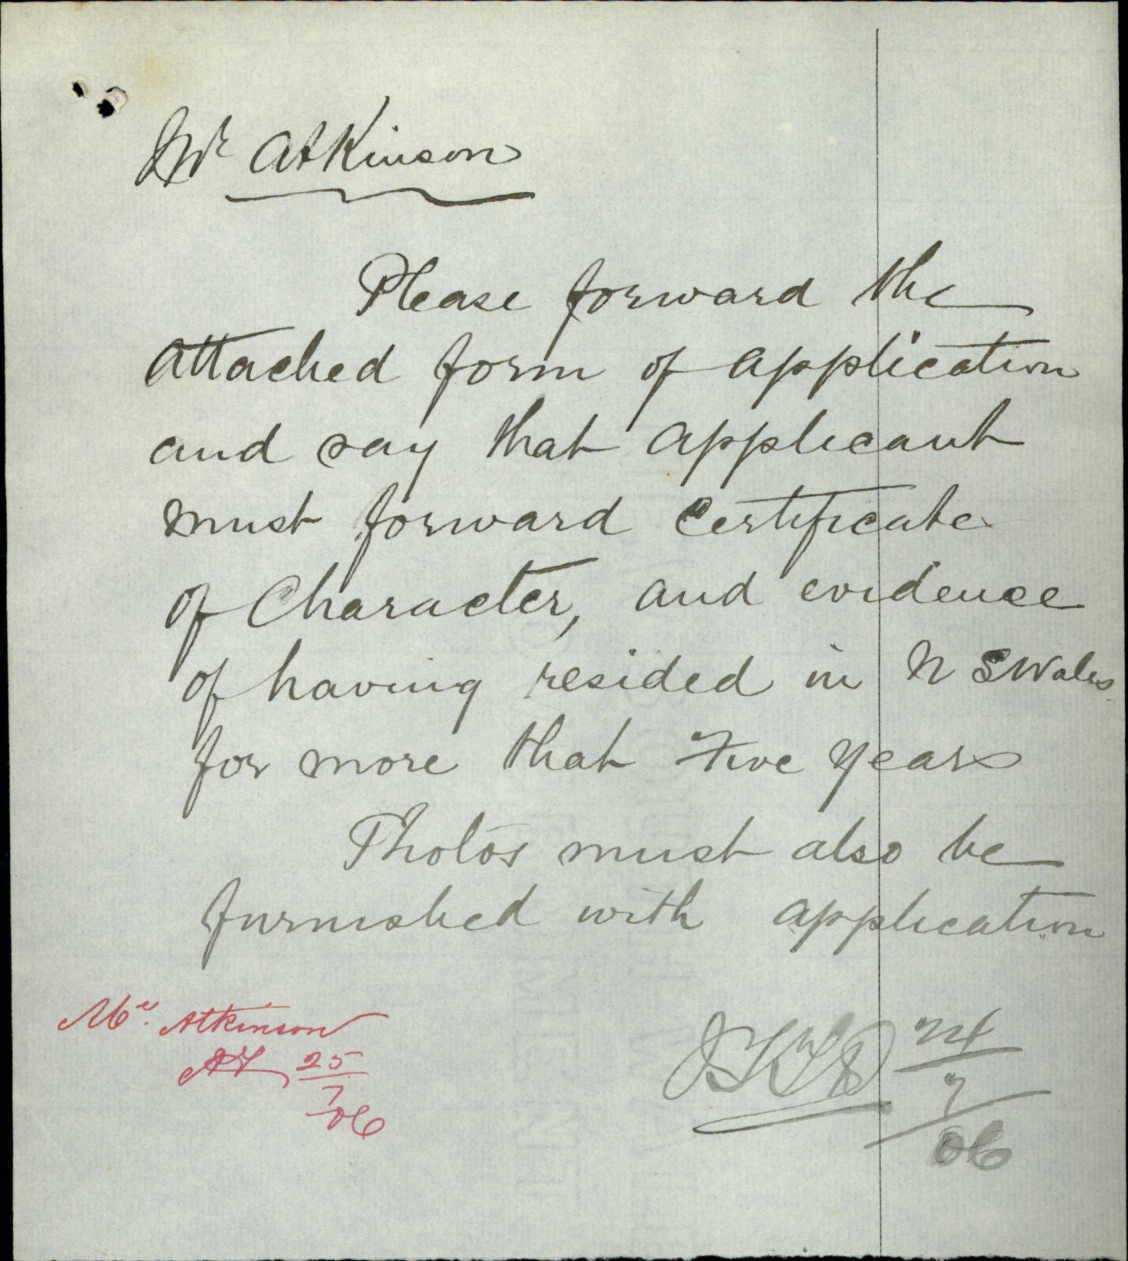 Mr Atkinson
Please forward the
attached form of application
and say that applicant
must forward certificate
of Character, and evidence
of having resided in N S Wales
for more that Five years
Photos must also be
furnished with application
Mr. Atkinson
25
7
06
24
7
06